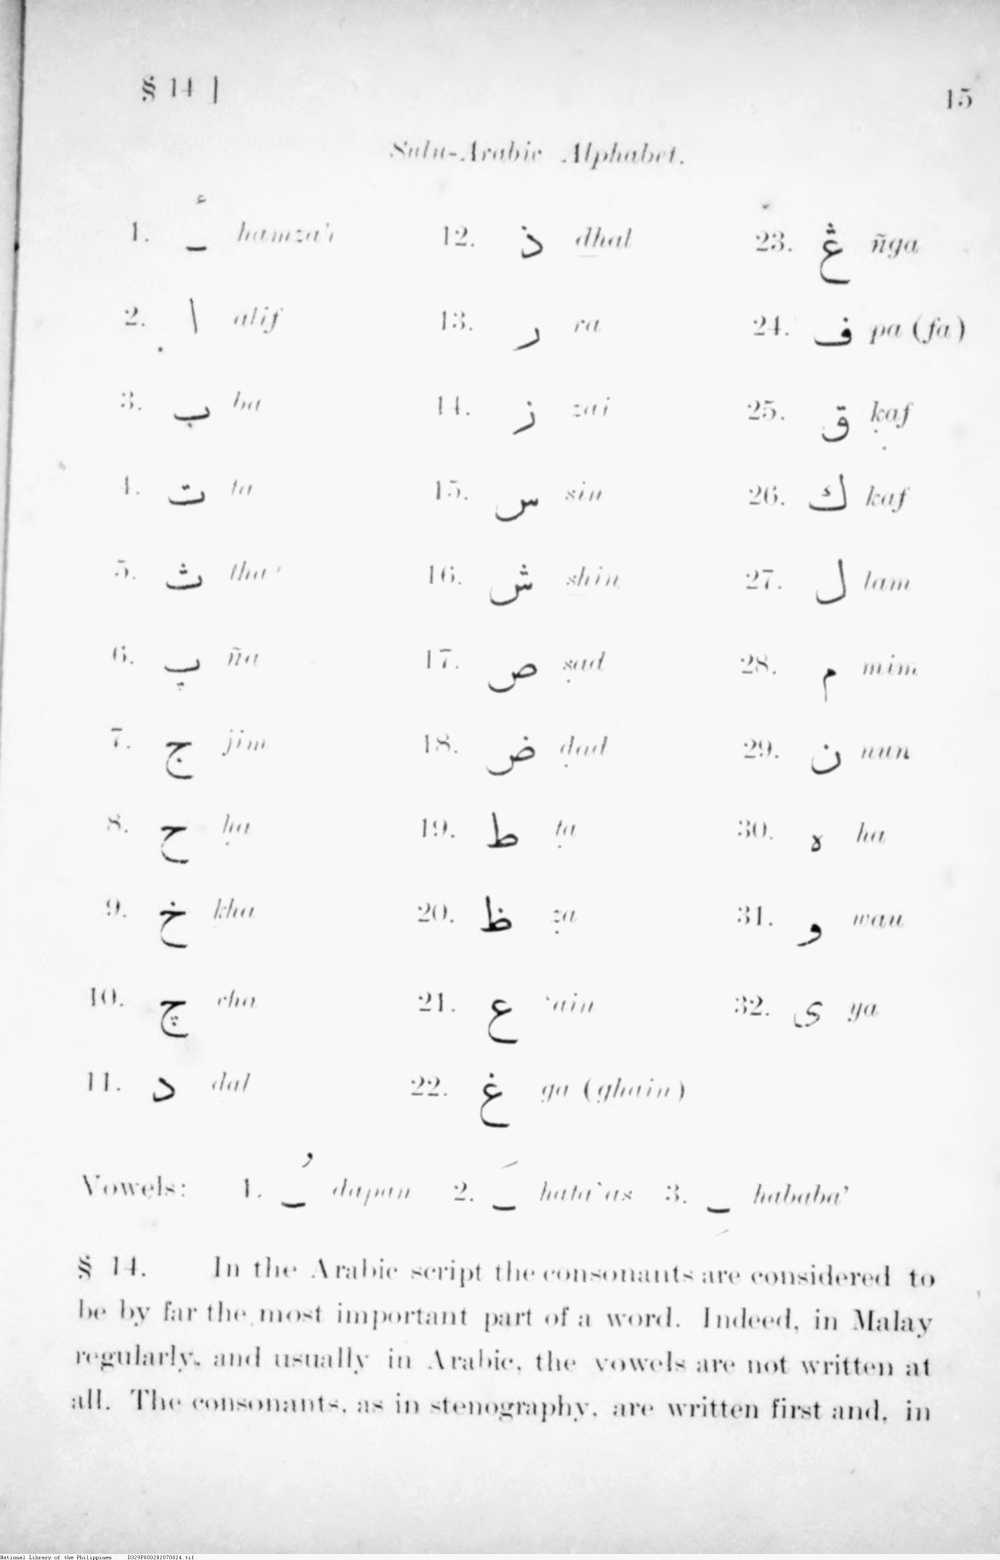 § 14 ]
15
Sulu-Arabic Alphabet.
1. ـٔ hamza'i 12. ذ dhal 23. ڠ ñga
2. ا alif 13. ر ra 24. ف pa (fa)
3. ب ba 14. ز zai 25. ق ḳaf
4. ت ta 15. س sin 26. ك kaf
5. ث tha 16. ش shin 27. ل lam
6. پ ña 17. ص ṣad 28. م mim
7. ج jim 18. ض ḍad 29. ن nun
8. ح ḥa 19. ط ṭa 30. ه ha
9. خ kha 20. ظ ẓa 31. و wau
10. چ cha 21. ع ‘ain 32. ى ya
11. د dal 22. غ ga (ghain)
Vowels: 1. ـُ dapan 2. ـَ hata‘as 3. ـِ hababa’
§ 14. In the Arabic script the consonants are considered to
be by far the most important part of a word. Indeed, in Malay
regularly, and usually in Arabic, the vowels are not written at
all. The consonants, as in stenography, are written first and, in
National Library of the Philippines